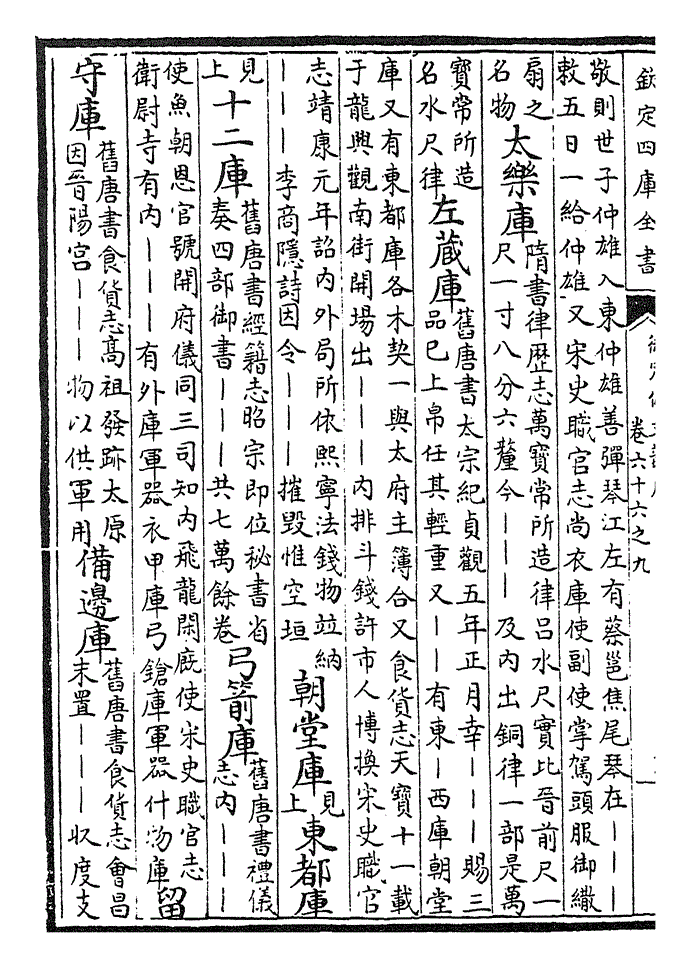 欽定四庫全書
卷六十六之九
敬則世子仲雄入東仲雄善彈琴江左有蔡邕焦尾琴在｜｜｜
敕五日一給仲雄又宋史職官志尚衣庫使副使掌駕頭服御繖
扇之
名物
太樂庫
隋書律歷志萬寶常所造律呂水尺實比晉前尺一
尺一寸八分六釐今｜｜｜及内出銅律一部是萬
寶常所造
名水尺律
左藏庫
舊唐書太宗紀貞觀五年正月幸｜｜｜賜三
品已上帛任其輕重又｜｜有東｜西庫朝堂
庫又有東都庫各木契一與太府主簿合又食貨志天寶十一載
于龍興觀南街開場出｜｜｜内排斗錢許市人博換宋史職官
志靖康元年詔内外局所依熙寧法錢物竝納
｜｜｜李商隱詩因令｜｜｜摧毀惟空垣
朝堂庫
見
上
東都庫
見
上
十二庫
舊唐書經籍志昭宗即位秘書省
奏四部御書｜｜｜共七萬餘卷
弓箭庫
舊唐書禮儀
志内｜｜｜
使魚朝恩官號開府儀同三司知内飛龍閑廐使宋史職官志
衛尉寺有内｜｜｜有外庫軍器衣甲庫弓鎗庫軍器什物庫
留
守庫
舊唐書食貨志高祖發跡太原
因晉陽宫｜｜｜物以供軍用
備邊庫
舊唐書食貨志會昌
末置｜｜｜收度支